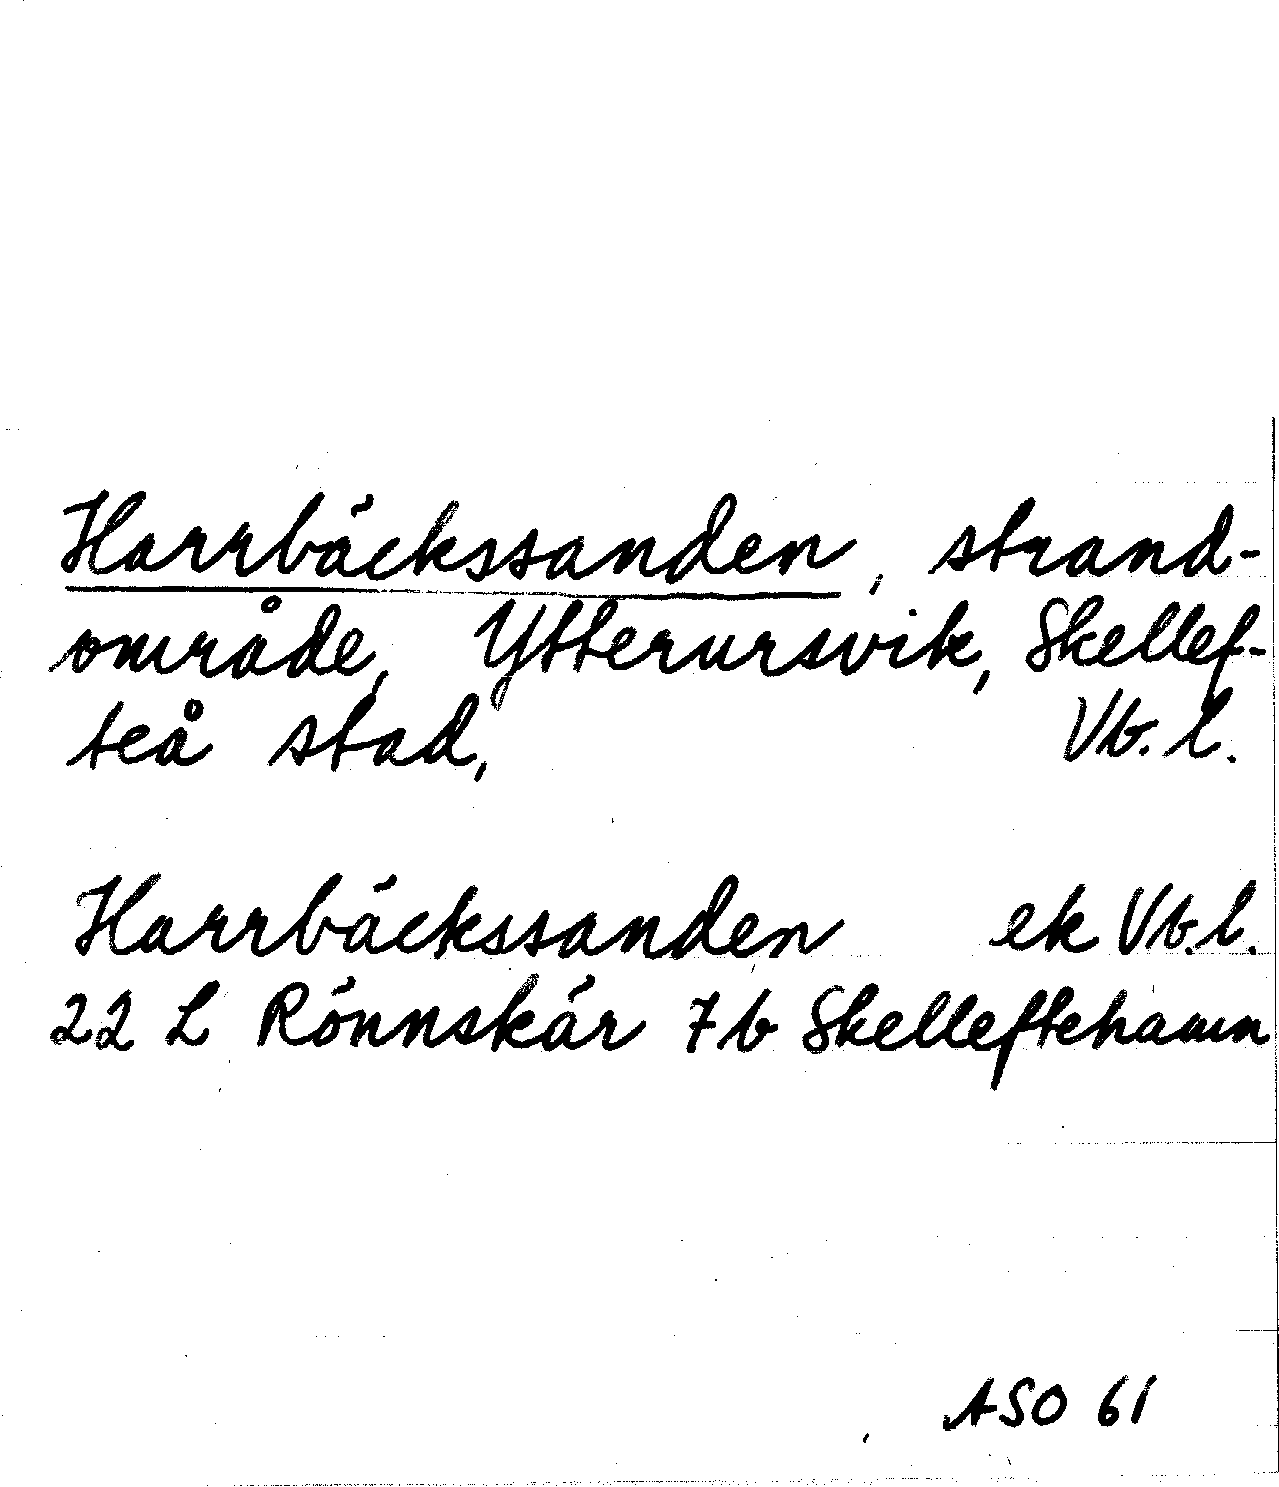 Harrbäckssanden, strand-
område, Ytterursvik, Skellef-
teå stad, Vb. l.
Harrbäckssanden ek Vb. l.
22 L Rönnskär 7b Skelleftehamn
ASO 61